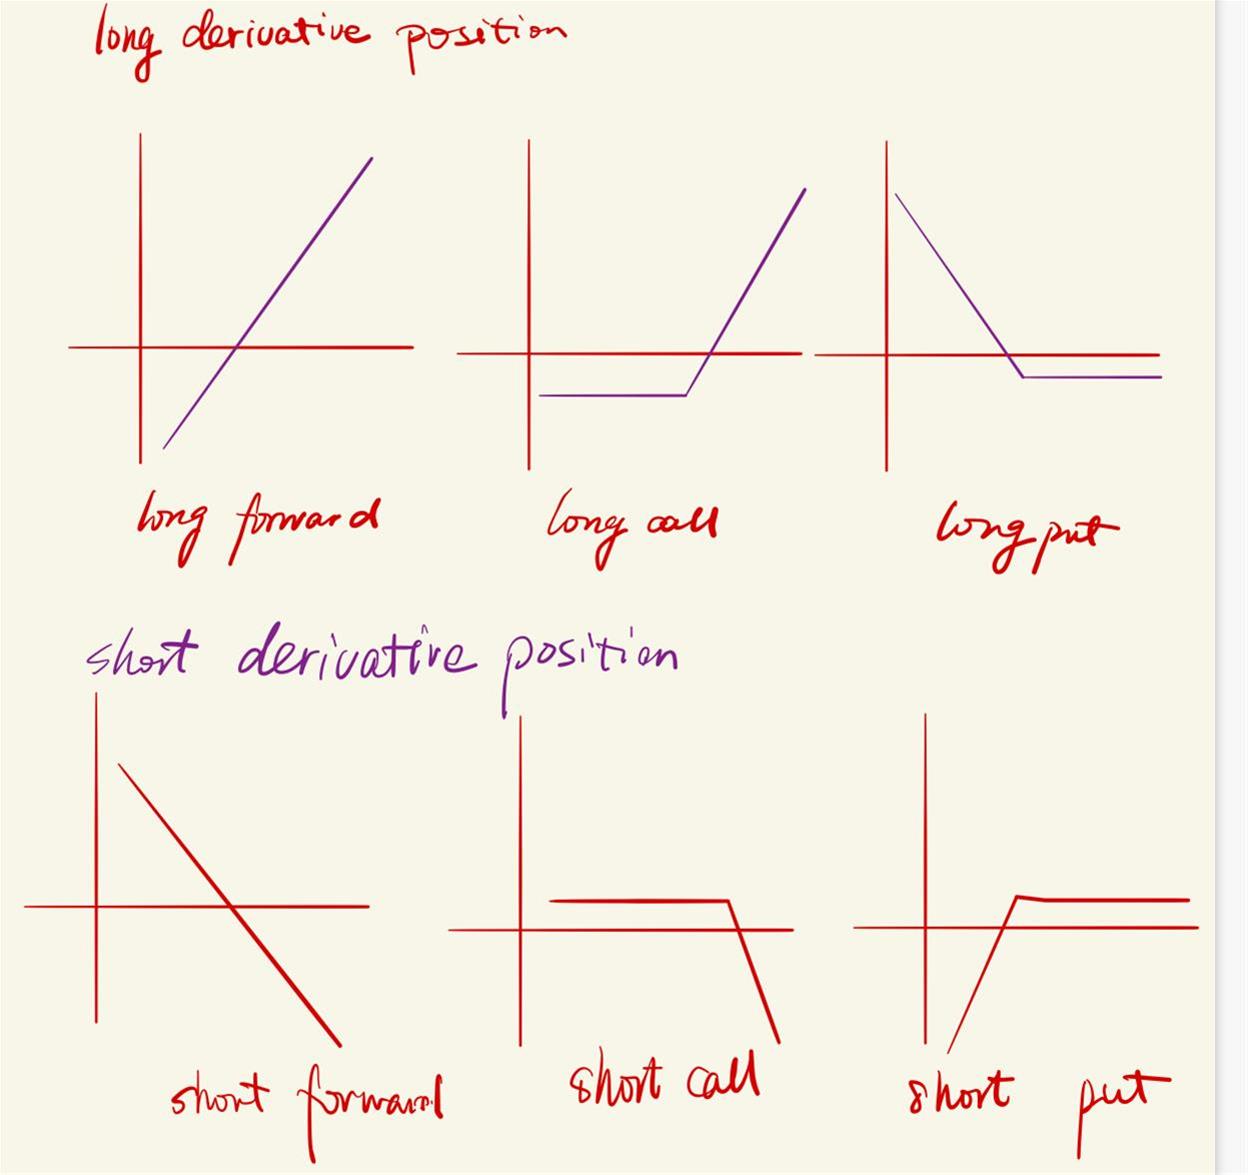 long derivative position
long forward
long call
long put
short derivative position
short forward
short call
short put